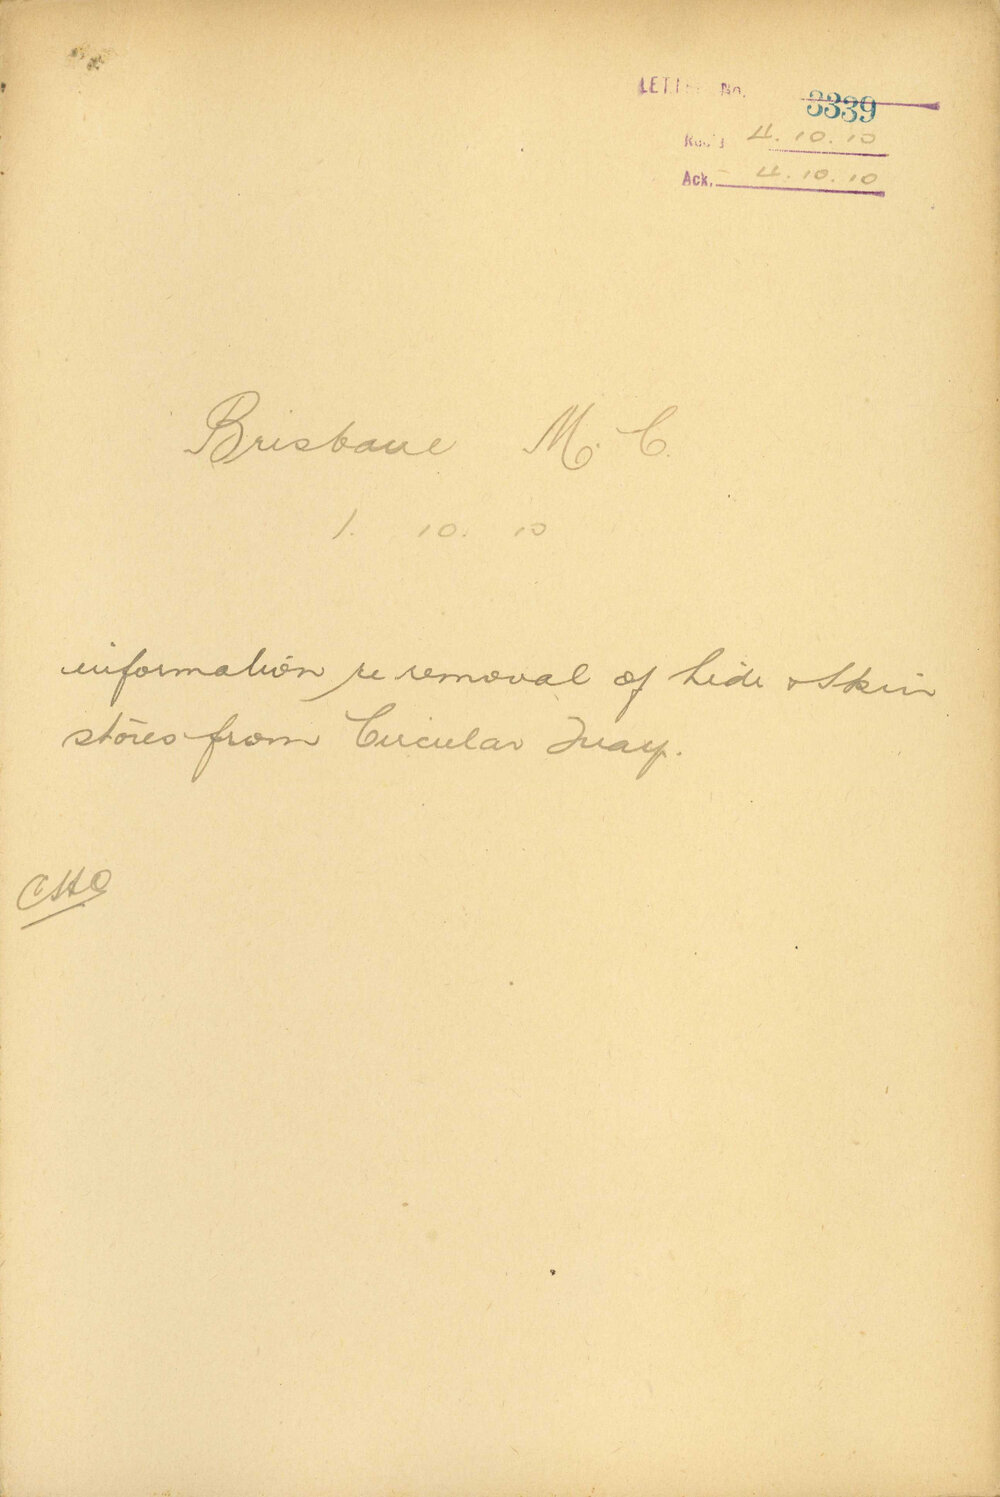 LETTER No. 3339
Rec'd 4.10.10
Ack. 4.10.10
Brisbane M.C.
1. 10. 10
information re removal of hide & skin
stores from Circular Quay.
CHO